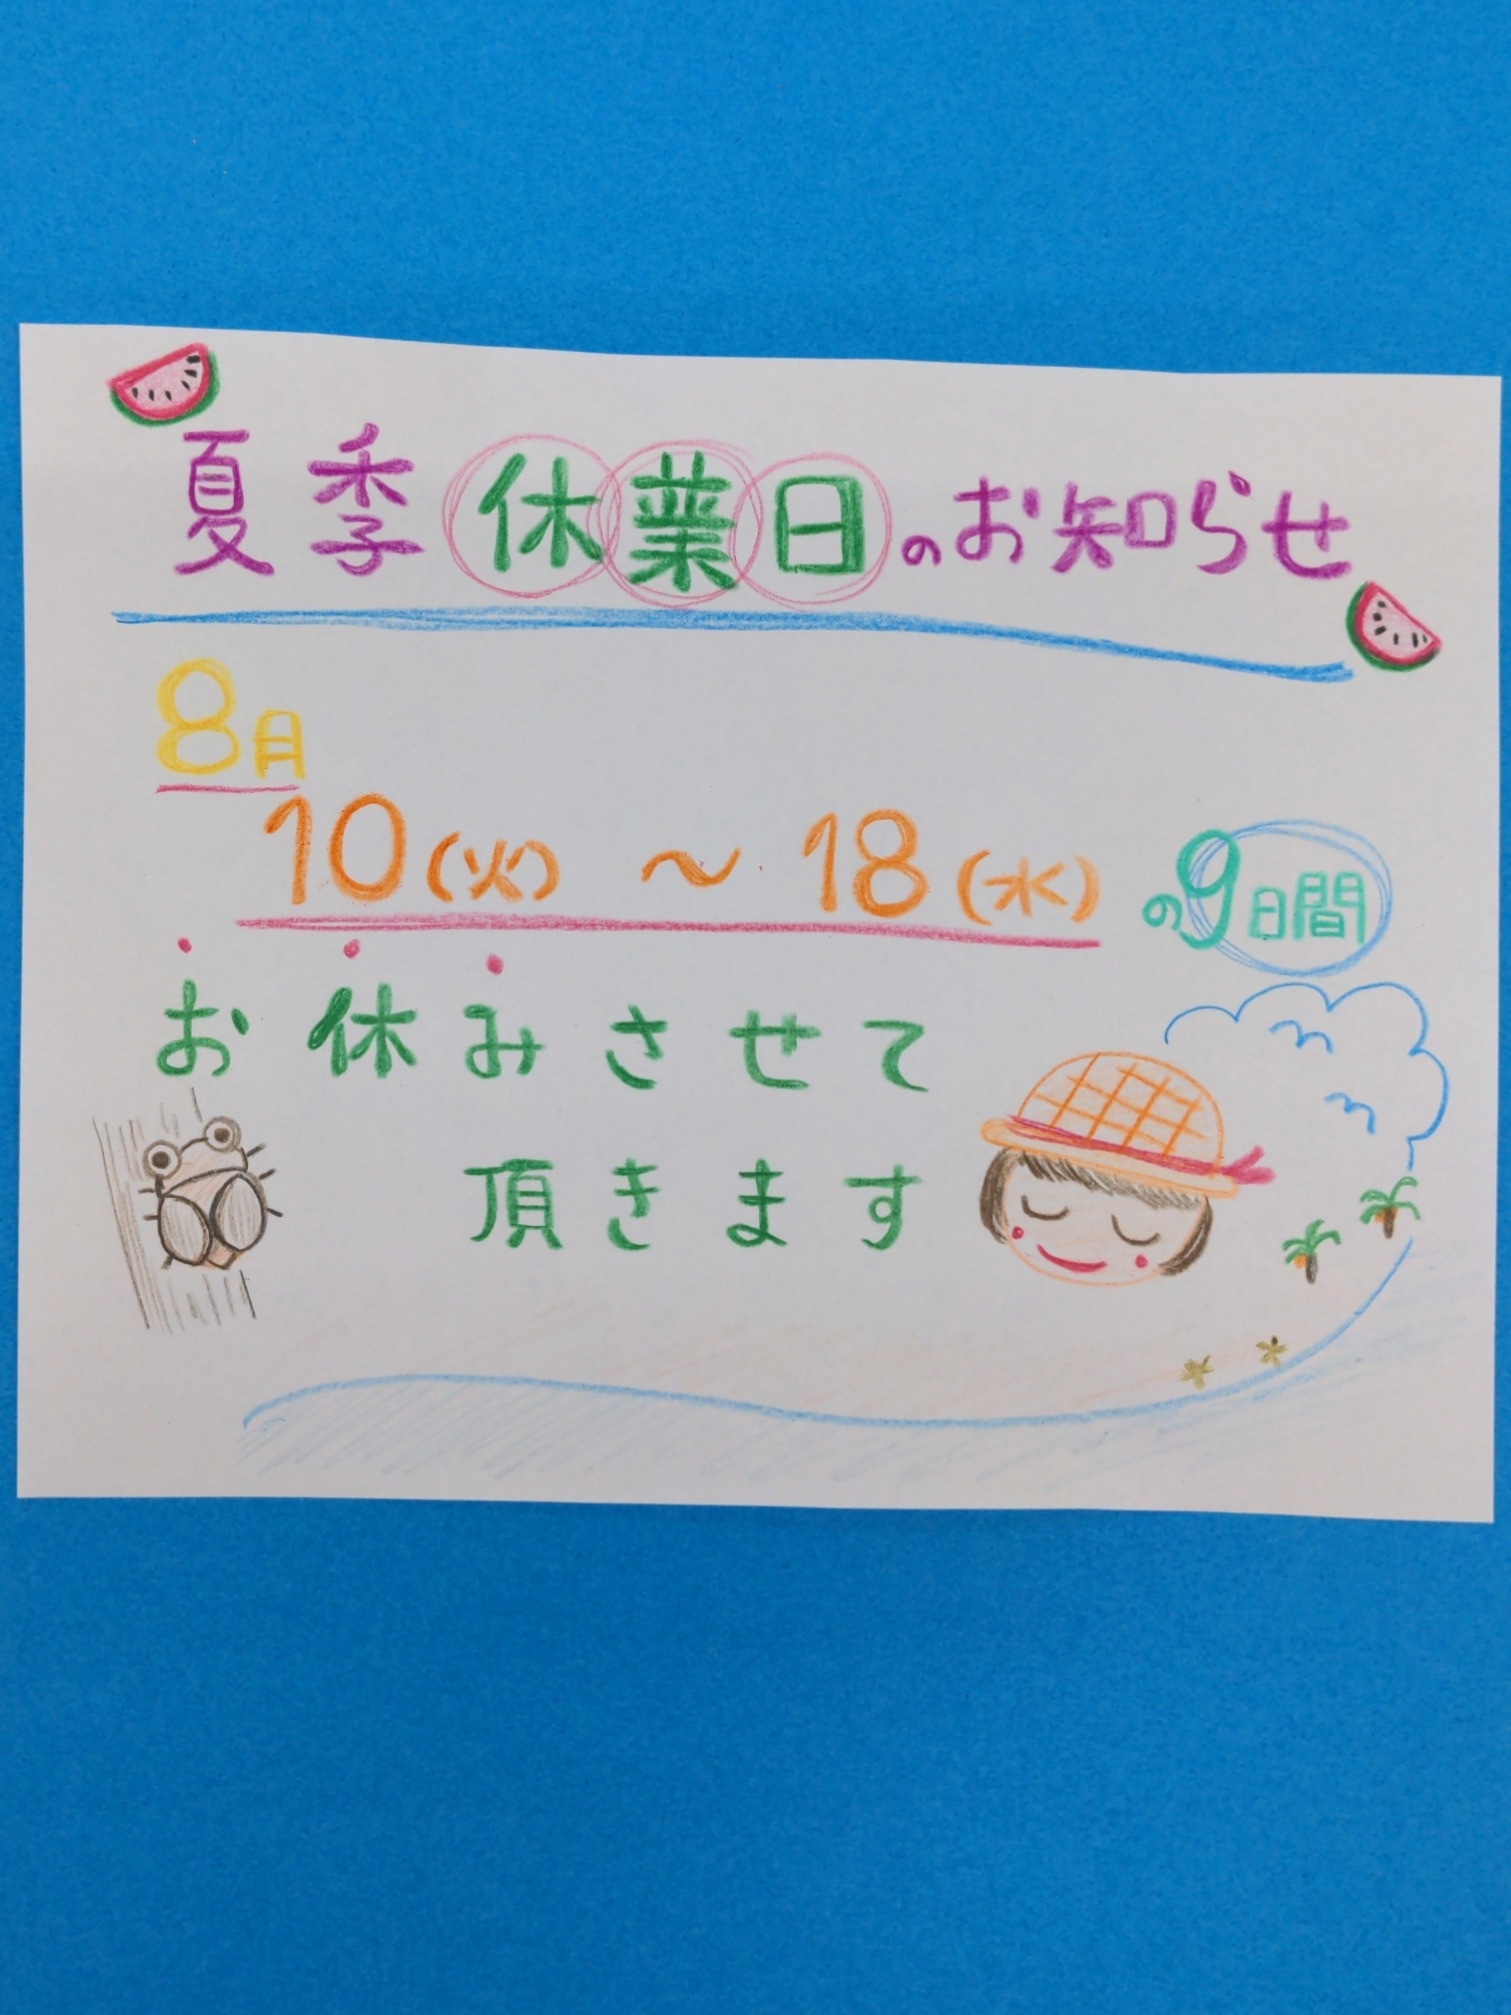 夏季休業日のお知らせ
8月
10(火) 〜 18(水) の9日間
お休みさせて
頂きます